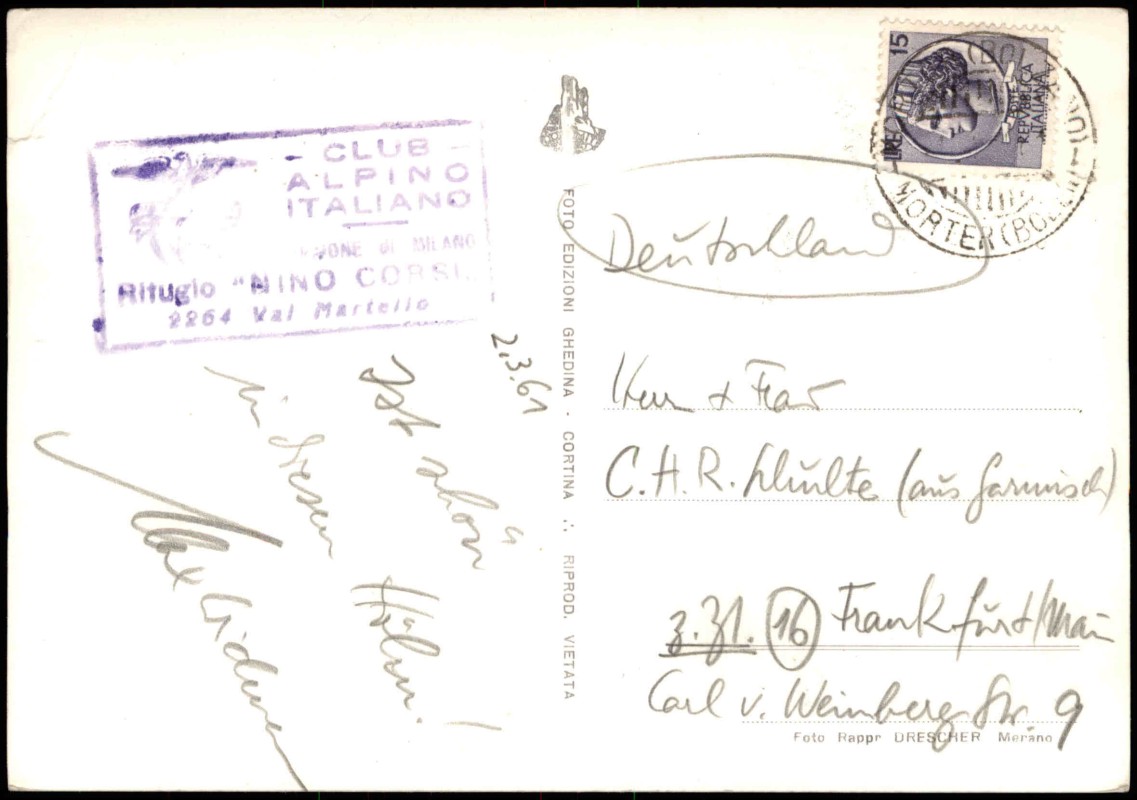 - CLUB -
ALPINO
ITALIANO
SEZIONE DI MILANO
Rifugio "NINO CORSI"
2264 Val Martello
2.3.61
Ist schön
in diesen
Höhen!
FOTO EDIZIONI GHEDINA · CORTINA ∴ RIPROD. VIETATA
LIRE 15
POSTE
REPVBBLICA
ITALIANA
MORTER (BOL
Deutschland
Herrn + Frau
C.H.R. Schulte (aus Garmisch)
z. Zt. (16) Frankfurt/Main
Carl v. Weinberg Str. 9
Foto Rappr DRESCHER Merano